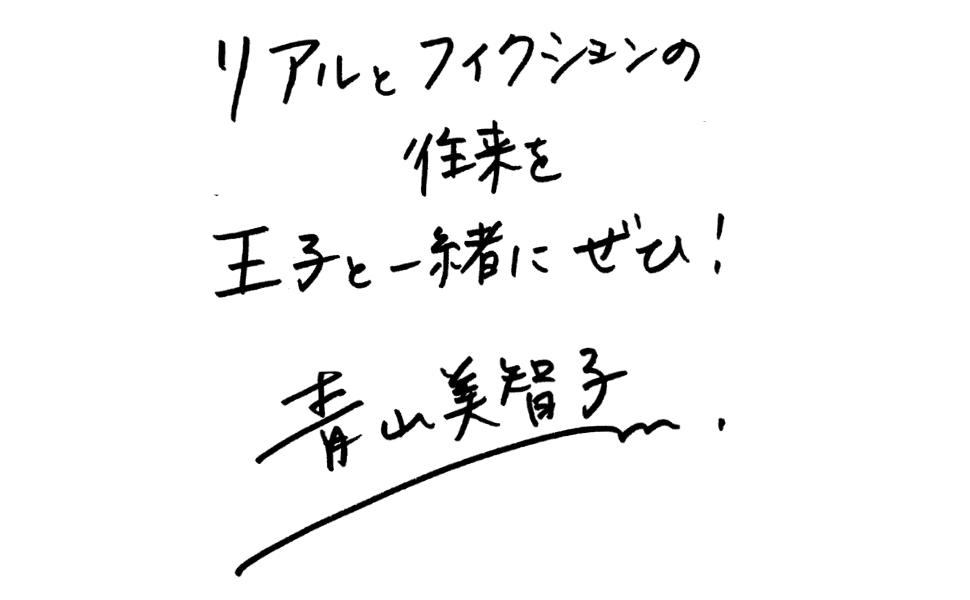 リアルとフィクションの
往来を
王子と一緒にぜひ!
青山美智子